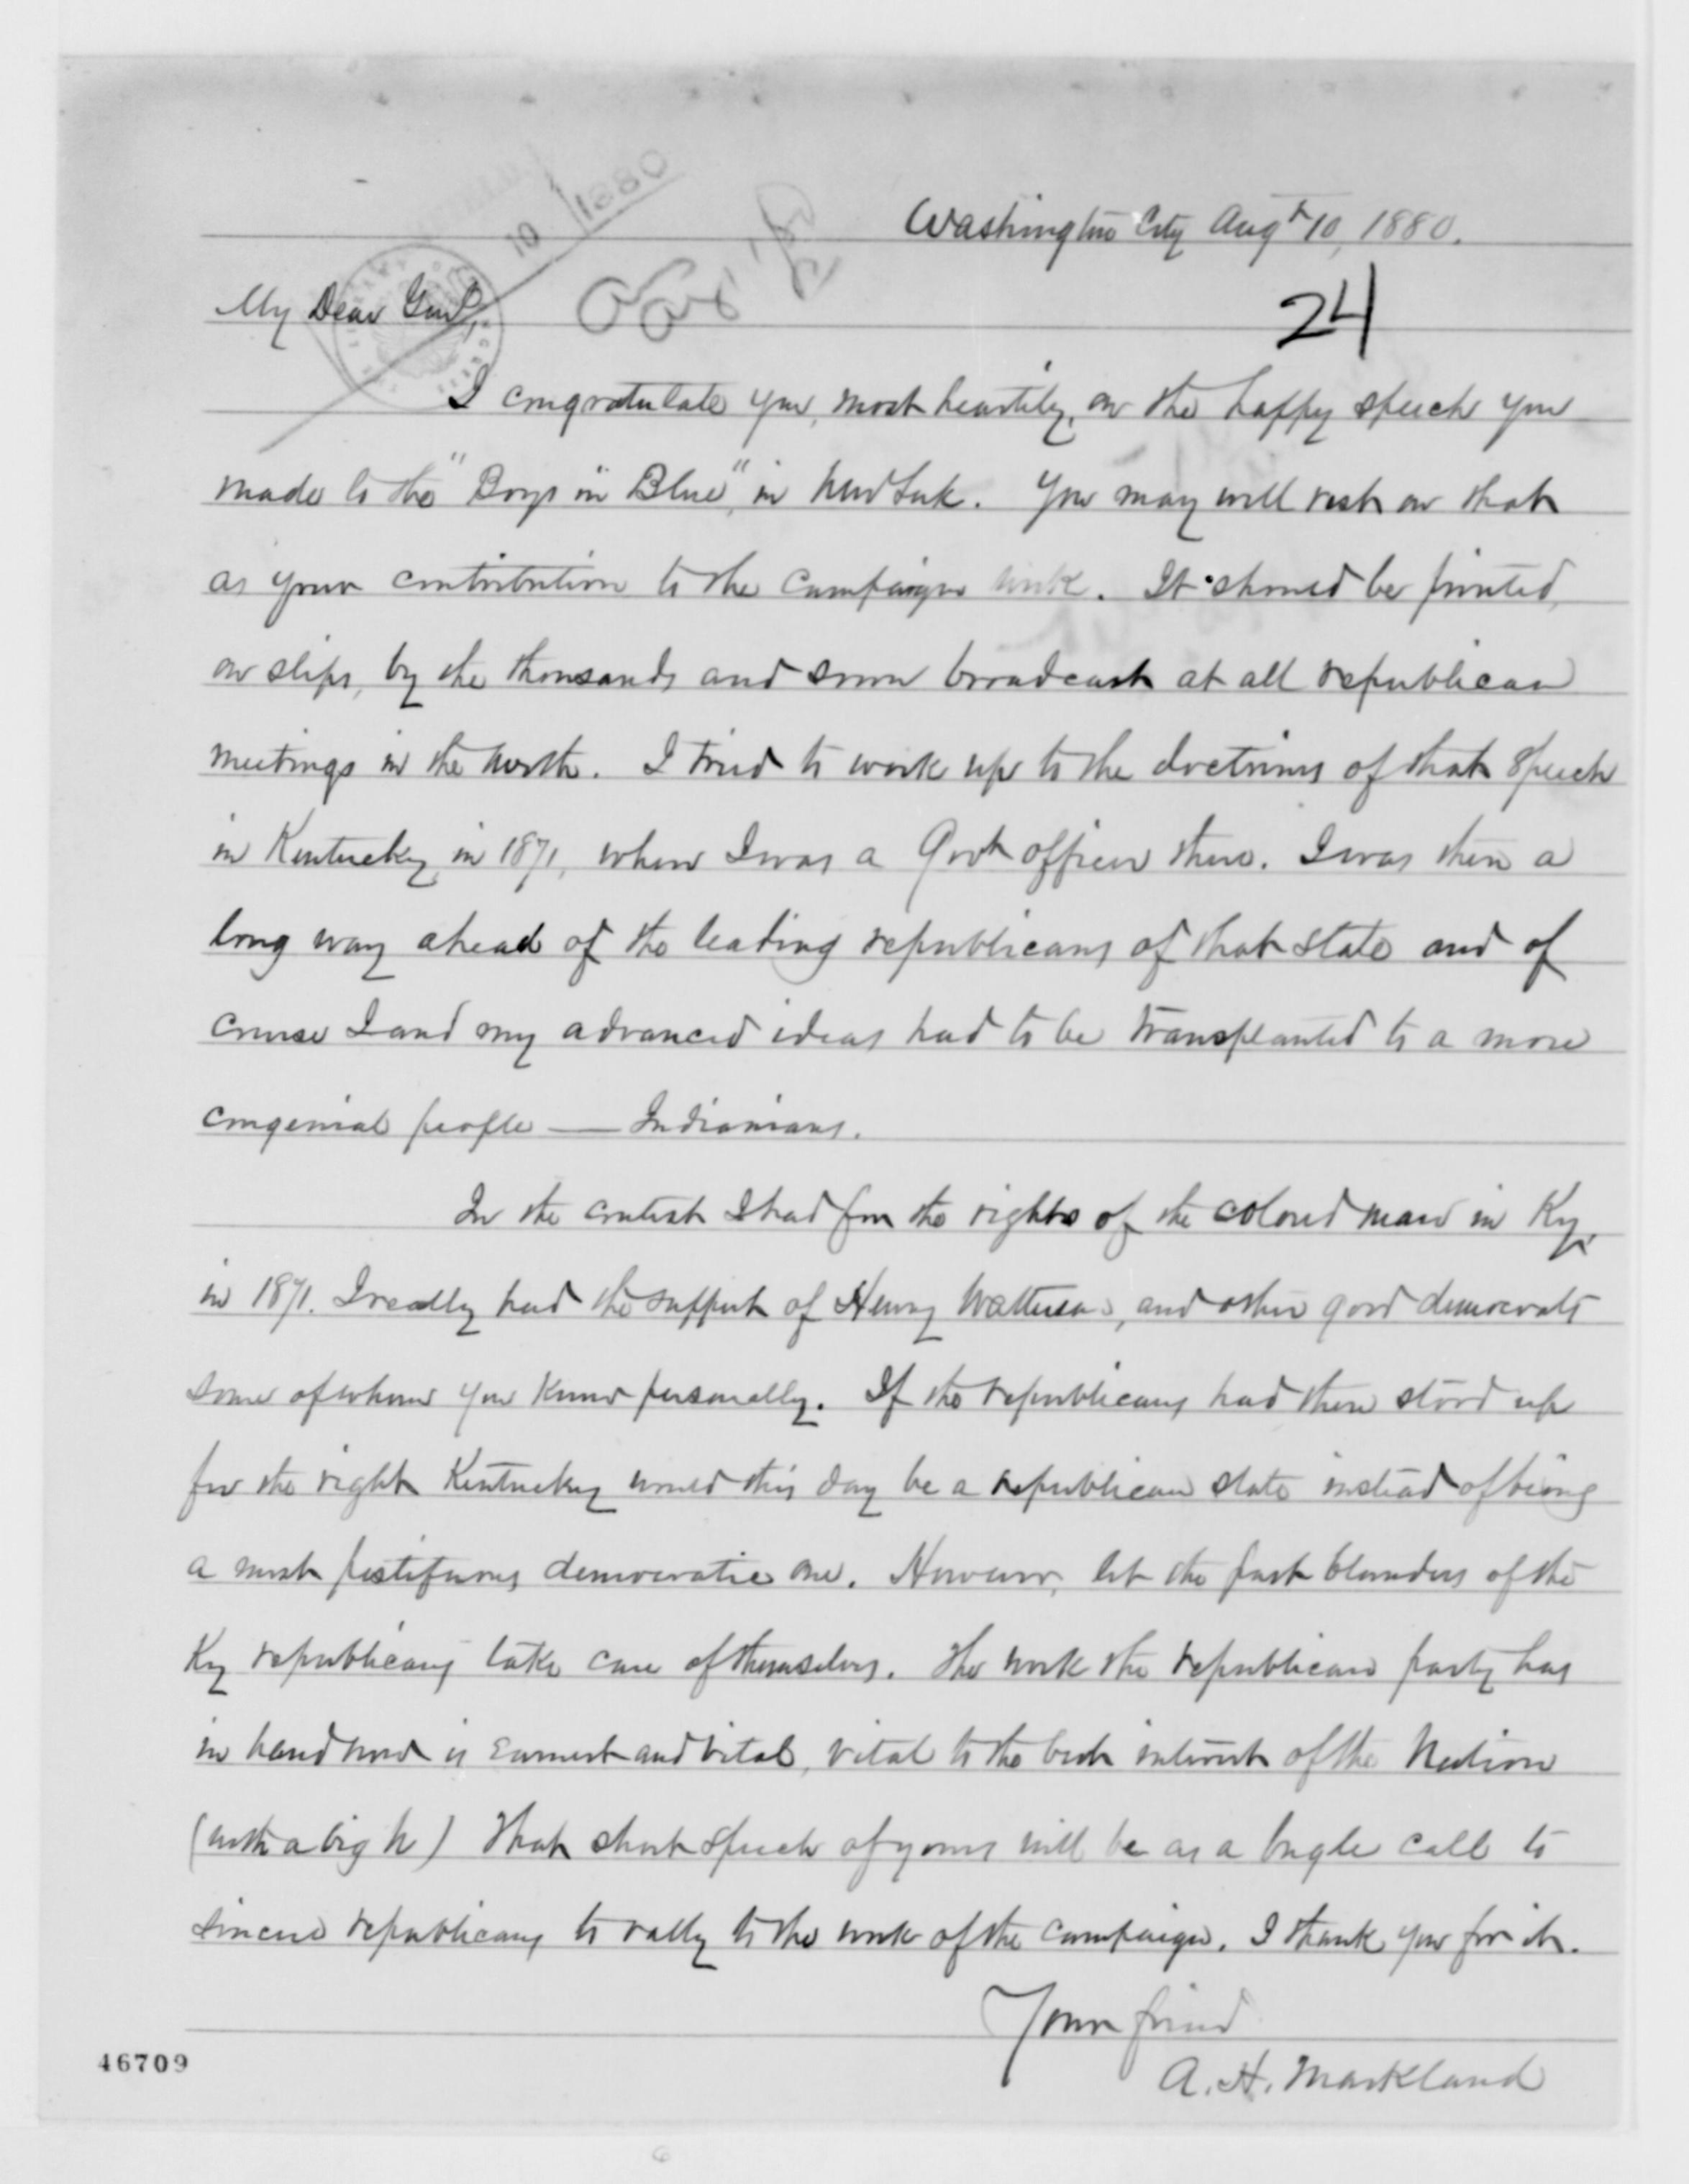 10 1880
Washington City Augt 10, 1880.
My Dear Genl,
24
I congratulate you, most heartily, on the happy speech you
made to the "Boys in Blue", in New York. You may well rest on that
as your contribution to the campaign work. It should be printed,
on slips, by the thousands and sown broadcast at all republican
meetings in the north. I tried to work up to the doctrines of that speech
in Kentucky, in 1871, when I was a Govt officer there. I was then a
long way ahead of the leading republicans of that state and of
course I and my advanced ideas had to be transplanted to a more
congenial people — Indianians.
In the contest I had for the rights of the colored man in Ky,
in 1871. I really had the support of Henry Watterson, and other good democrats
some of whom you know personally. If the republicans had then stood up
for the right Kentucky would this day be a republican state instead of being
a most pestiferous democratic one. However, let the past blunders of the
Ky republicans take care of themselves. The work the republican party has
in hand now is earnest and vital, vital to the best interest of the Nation
(with a big N) That short speech of yours will be as a bugle call to
sincere republicans to rally to the work of the campaign. I thank you for it.
Your friend
A. H. Markland
46709